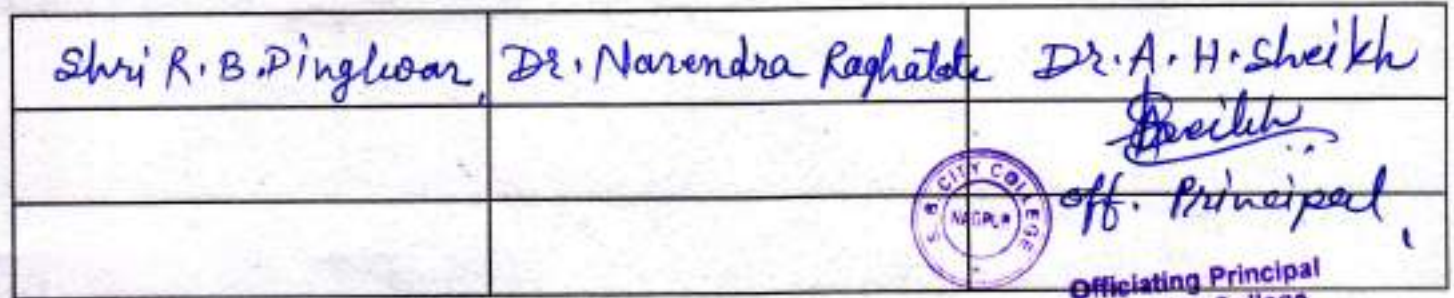 Shri R. B. Dinghoar, Dr. Narendra Raghatate Dr. A. H. Sheikh
Sheikh
off. Principal,
S. B. CITY COLLEGE
NAGPUR
Officiating Principal
College